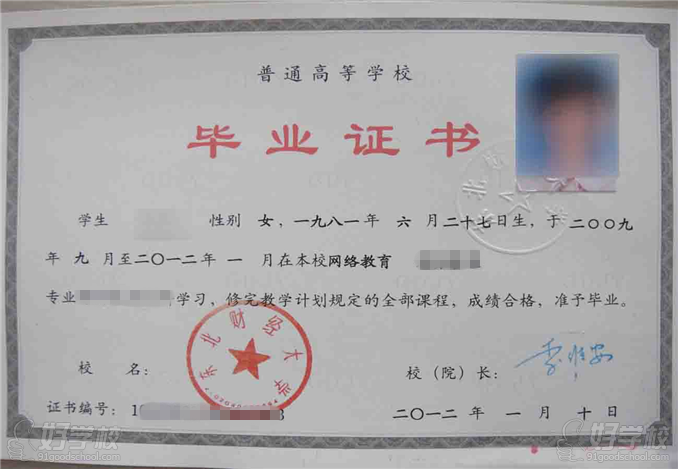 普通高等学校
毕业证书
学生 性别 女，一九八一年 六 月二十七日生，于 二〇〇九
年 九 月至二〇一二年 一 月在本校网络教育
专业 学习，修完教学计划规定的全部课程，成绩合格，准予毕业。
校 名： 校（院）长：
东北财经大学
证书编号：1 8 二〇一二 年 一 月 十 日
好学校 好学校
91goodschool.com 91goodschool.com